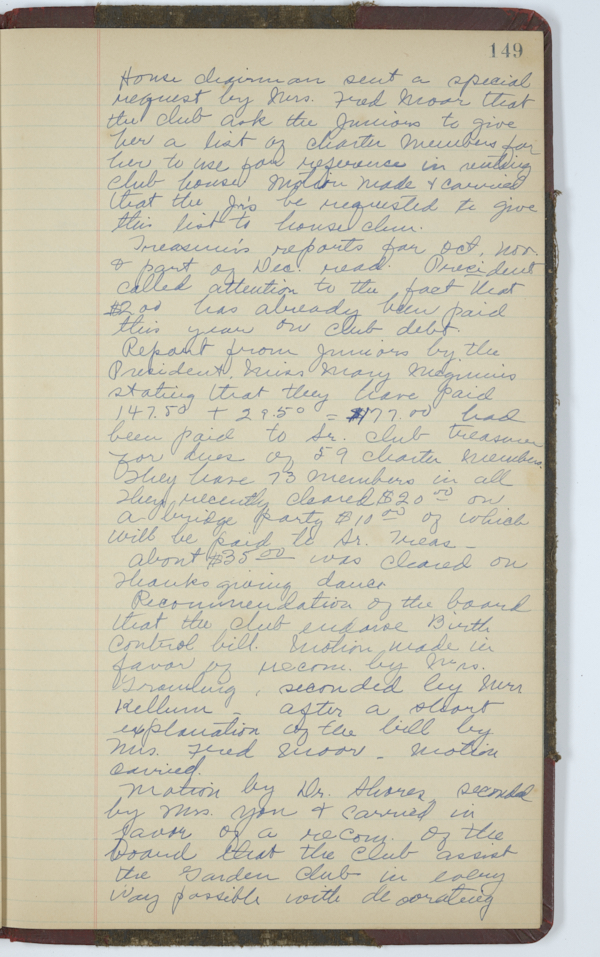 149
House chairman sent a special
request by Mrs. Fred Moor that
the club ask the Juniors to give
her a list of charter members for
her to use for reference in renting
club house Motion made & carried
that the Jrs be requested to give
this list to house chm.
Treasurer's reports for Oct, Nov.
& part of Dec. read. President
called attention to the fact that
$200 has already been paid
this year on club debt.
Report from Juniors by the
President, Miss Mary Meginnis
stating that they have paid
147.50 + 29.50 = $177.00 had
been paid to Sr. Club treasurer
for dues of 59 charter members.
They have 73 members in all
They recently cleared $20.00 on
a bridge party $10.00 of which
will be paid to Sr. Treas -
About $35.00 was cleared on
Thanksgiving dance
Recommendation of the board
that the Club endorse Birth
Control bill. Motion made in
favor of recom. by Mrs.
Gramling, seconded by Mrs
Kellum - after a short
explanation of the bill by
Mrs. Fred Moor - Motion
carried.
Motion by Dr. Shores, seconded
by Mrs. Yon & carried in
favor of a recom. of the
board that the Club assist
the Garden Club in every
way possible with decorating